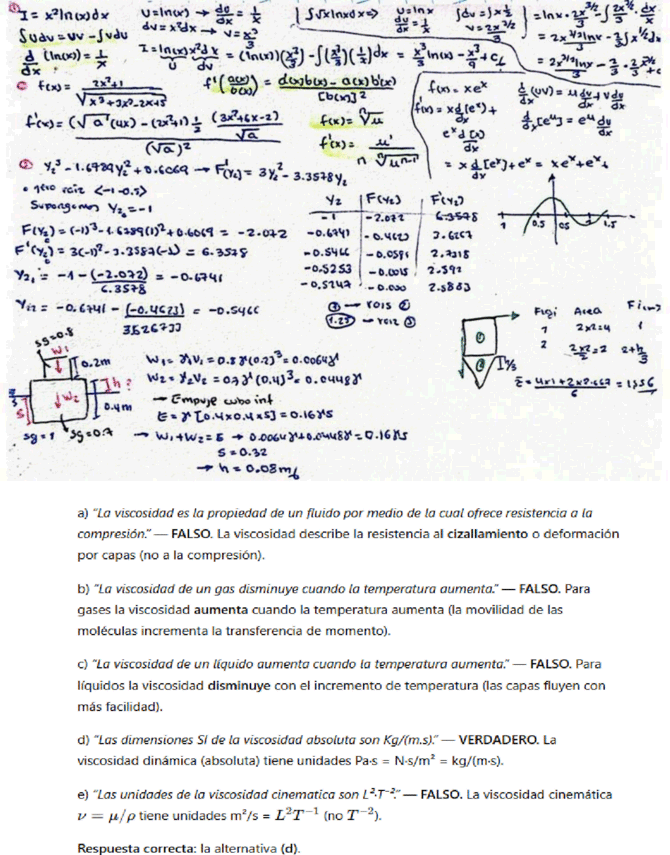 ① I = x² ln(x) dx   U = ln(x) → du/dx = 1/x   ∫√x lnx dx ⇒ u = lnx   ∫dv = ∫x^½   = lnx · 2x^3/2/3 - ∫ 2x^3/2/3 · dx/x
∫u dv = uv - ∫v du   dv = x² dx → v = x³/3   du/dx = 1/x   v = 2x^3/2/3   = 2x^3/2 lnx/3 - 2/3 ∫x^½ dx
d/dx (ln(x)) = 1/x   I = ln(x) x² dx = (ln(x))(x³/3) - ∫(x³/3)(1/x) dx = x³/3 ln(x) - x³/9 + C
U   dv
f(x) = 2x²+1/√x³+3x²-2x+5   f'(a(x)/b(x)) = a(x)b(x) - a(x)b'(x)/[b(x)]²   f(x) = xe^x   d/dx (uv) = u dv/dx + v du/dx
f'(x) = (√a (4x) - (2x²+1) ½ (3x²+6x-2)/√a)/(√a)²   f(x) = ⁿ√u   f'(x) = x d/dx [e^x] +   d/dx [e^u] = e^u du/dx
f'(x) = u'/n ⁿ√uⁿ⁻¹   e^x d[x]/dx
= x d/dx [e^x] + e^x = xe^x + e^x
② Y₂³ - 1.6789Y₂² + 0.6069 → F'(Y₂) = 3Y₂² - 3.3578Y₂
• raiz <-1 -0.5>
Supongamos Y₂₀ = -1
Y₂   F(Y₂)   F'(Y₂)
-1   -2.072   6.3578
-0.6741   -0.4623
-0.5466   -0.0591
-0.5253   -0.0015   2.592
-0.5247   -0.000
-1   0.5   0.5   1.5
F'(Y₂) = 3(-1)² - 3.3587(-1) = 6.3578
Y₂₁ = -1 - (-2.072)/6.3578 = -0.6741
= -0.6741 - (-0.4623) = -0.5466
① → raiz ②
1.25 → raiz ③
Sg=0.8
W₁   0.2m
W₂   h?
S   0.4m
Sg=1   Sg=0.7
W₁ = γ₁V₁ = 0.8γ(0.2)³ = 0.0064γ
W₂ = γ₂V₂ = 0.7γ(0.4)³ = 0.0448γ
→ Empuje cubo inf
E = γ[0.4x0.4xS] = 0.16γS
→ W₁+W₂ = E → 0.0064γ+0.0448γ = 0.16γS
S = 0.32
→ h = 0.08m
Area
1   2x2=4   1
2   2x2/2=2   2+h/3
a) “La viscosidad es la propiedad de un fluido por medio de la cual ofrece resistencia a la
compresión.” — FALSO. La viscosidad describe la resistencia al cizallamiento o deformación
por capas (no a la compresión).
b) “La viscosidad de un gas disminuye cuando la temperatura aumenta.” — FALSO. Para
gases la viscosidad aumenta cuando la temperatura aumenta (la movilidad de las
moléculas incrementa la transferencia de momento).
c) “La viscosidad de un líquido aumenta cuando la temperatura aumenta.” — FALSO. Para
líquidos la viscosidad disminuye con el incremento de temperatura (las capas fluyen con
más facilidad).
d) “Las dimensiones SI de la viscosidad absoluta son Kg/(m.s).” — VERDADERO. La
viscosidad dinámica (absoluta) tiene unidades Pa·s = N·s/m² = kg/(m·s).
e) “Las unidades de la viscosidad cinematica son L².T⁻².” — FALSO. La viscosidad cinemática
ν = μ/ρ tiene unidades m²/s = L²T⁻¹ (no T⁻²).
Respuesta correcta: la alternativa (d).